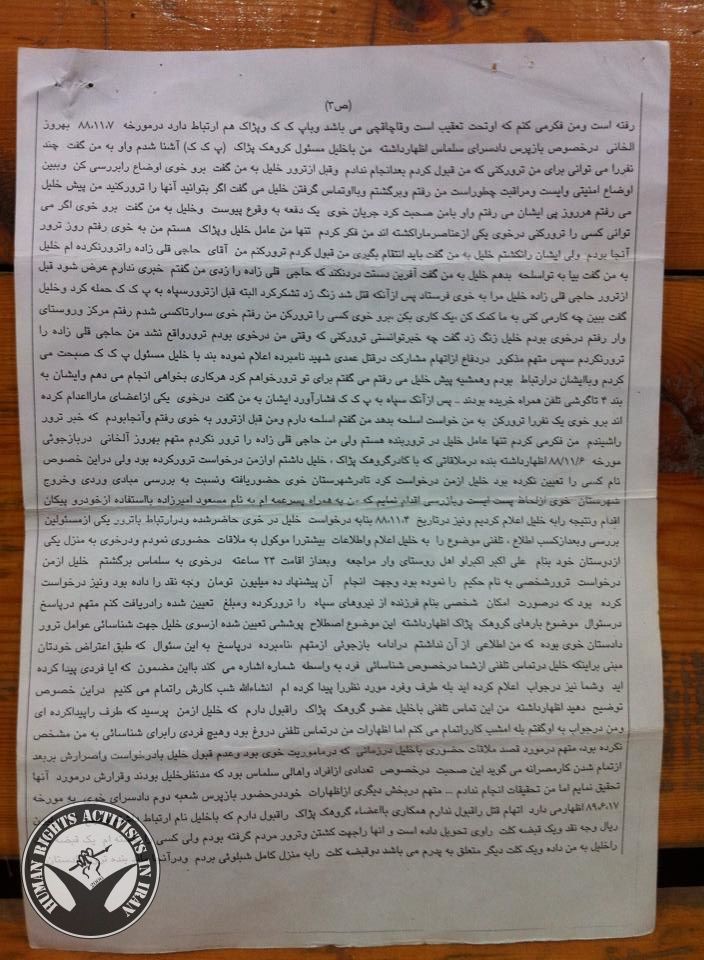 (ص۳)
رفته است ومن فکرمی کنم که اوتحت تعقیب است وقاچاقچی می باشد وباپ ک ک وپژاک هم ارتباط دارد درمورخه ۸۸،۱۱،۷ بهروز
الخانی درخصوص بازپرس دادسرای سلماس اظهارداشته من باخلیل مسئول کروهک پژاک (پ ک ک) آشنا شدم واو به من گفت چند
نفررا می توانی برای من ترورکنی که من قبول کردم بعدانجام ندادم وقبل ازترور خلیل به من گفت برو خوی اوضاع رابررسی کن وببین
اوضاع امنیتی وایست ومراقبت چطوراست من رفتم وبرگشتم وبااوتماس گرفتن خلیل می گفت اگر بتوانید آنها را ترورکنید من پیش خلیل
می رفتم هرروز پی ایشان می رفتم واو بامن صحبت کرد جریان خوی یک دفعه به وقوع پیوست وخلیل به من گفت برو خوی اگر می
توانی کسی را ترورکنی درخوی یکی ازعناصرماراکشته اند من فکر کردم تنها من عامل خلیل وپژاک هستم من به خوی رفتم روز ترور
آنجا بودم ولی ایشان رانکشتم خلیل به من گفت باید انتقام بگیری من قبول کردم ترورکنم من آقای حاجی قلی زاده راترورنکرده ام خلیل
به من گفت بیا به تواسلحه بدهم خلیل به من گفت آفرین دستت دردنکند که حاجی قلی زاده را زدی من گفتم خبری ندارم عرض شود قبل
ازترور حاجی قلی زاده خلیل مرا به خوی فرستاد پس ازآنکه قتل شد زنگ زد تشکرکرد البته قبل ازترورسپاه به پ ک ک حمله کرد وخلیل
گفت ببین چه کارمی کنی به ما کمک کن ،یک کاری بکن ،برو خوی کسی را ترورکن من رفتم خوی سوارتاکسی شدم رفتم مرکز وروستای
وار رفتم درخوی بودم خلیل زنگ زد گفت چه خبرتوانستی ترورکنی که وقتی من درخوی بودم ترورواقع نشد من حاجی قلی زاده را
ترورنکردم سپس متهم مذکور دردفاع ازاتهام مشارکت درقتل عمدی شهید نامبرده اعلام نموده بند با خلیل مسئول پ ک ک صحبت می
کردم وباایشان درارتباط بودم وهمشیه پیش خلیل می رفتم می گفتم برای تو ترورخواهم کرد هرکاری بخواهی انجام می دهم وایشان به
بند ۴ تاگوشی تلفن همراه خریده بودند .. پس ازآنک سپاه به پ ک ک فشارآورد ایشان به من گفت درخوی یکی ازاعضای مارااعدام کرده
اند برو خوی یک نفررا ترورکن به من خواست اسلحه بدهد من گفتم اسلحه دارم ومن قبل ازترور به خوی رفتم وآنجابودم که خبر ترور
راشنیدم من فکرمی کردم تنها عامل خلیل در تروربنده هستم ولی من حاجی قلی زاده را ترور نکردم متهم بهروز آلخانی دربازجوئی
مورخه ۸۸/۱۱/۶ اظهارداشته بنده درملاقاتی که با کادرگروهک پژاک ، خلیل داشتم اوازمن درخواست ترورکرده بود ولی دراین خصوص
نام کسی را تعیین نکرده بود خلیل ازمن درخواست کرد تادرشهرستان خوی حضوریافته ونسبت به بررسی مبادی وردی وخروج
شهرستان خوی ازلحاظ پست ایست وبازرسی اقدام نمایم که من به همراه پسرعمه ام به نام مسعود امیرزاده بااستفاده ازخودرو پیکان
اقدام ونتیجه رابه خلیل اعلام کردیم ونیز درتاریخ ۸۸،۱۱،۰۴ بنابه درخواست خلیل در خوی حاضرشده ودرارتباط باترور یکی ازمسئولین
بررسی وبعدازکسب اطلاع ، تلفنی موضوع را به خلیل اعلام واطلاعات بیشتررا موکول به ملاقات حضوری نمودم ودرخوی به منزل یکی
ازدوستان خود بنام علی اکبر اکبرلو اهل روستای وار مراجعه وبعداز اقامت ۲۴ ساعته درخوی به سلماس برگشتم خلیل ازمن
درخواست ترورشخصی به نام حکیم را نموده بود وجهت انجام آن پیشنهاد ده میلیون تومان وجه نقد را داده بود ونیز درخواست
کرده بود که درصورت امکان شخصی بنام فرزنده از نیروهای سپاه را ترورکرده ومبلغ تعیین شده رادریافت کنم متهم درپاسخ
درسئوال موضوع بارهای گروهک پژاک اظهارداشته این موضوع اصطلاح پوششی تعیین شده ازسوی خلیل جهت شناسائی عوامل ترور
دادستان خوی بوده که من اطلاعی از آن نداشتم درادامه بازجوئی ازمتهم ،نامبرده درپاسخ به این سئوال که طبق اعتراض خودتان
مبنی براینکه خلیل درتماس تلفنی ازشما درخصوص شناسائی فرد به واسطه شماره اشاره می کند بااین مضمون که ایا فردی پیدا کرده
اید وشما نیز درجواب اعلام کرده اید بله طرف وفرد مورد نظررا پیدا کرده ام انشاءالله شب کارش راتمام می کنیم دراین خصوص
توضیح دهید اظهارداشته من این تماس تلفنی باخلیل عضو گروهک پژاک راقبول دارم که خلیل ازمن پرسید که طرف راپیداکرده ای
ومن درجواب به اوگفتم بله امشب کارراتمام می کنم اما اظهارات من درتماس تلفنی دروغ بود وهیچ فردی رابرای شناسائی به من مشخص
نکرده بود، متهم درمورد قصد ملاقات حضوری باخلیل درزمانی که درماموریت خوی بود وعدم قبول خلیل بادرخواست واصرارش بربعد
ازتمام شدن کارمصرانه می گوید این صحبت درخصوص تعدادی ازافراد واهالی سلماس بود که مدنظرخلیل بودند وقرارش درمورد آنها
تحقیق نمایم اما من تحقیقات انجام ندادم ... متهم دربخش دیگری ازاظهارات خوددرحضور بازپرس شعبه دوم دادسرای خوی به مورخه
۸۹،۶،۱۷ اظهارمی دارد اتهام قتل راقبول ندارم همکاری بااعضاء گروهک پژاک راقبول دارم که باخلیل نام ارتباط
ریال وجه نقد ویک قبضه کلت راوی تحویل داده است و انها راجهت کشتن وترور مردم گرفته بودم ولی کسی ام یک قبضه
راخلیل به من داده ویک کلت دیگر متعلق به پدرم می باشد دوقبضه کلت رابه منزل کامل شبلوئی بردم ودرآنجا بنده
HUMAN RIGHTS ACTIVISTS IN IRAN
2006